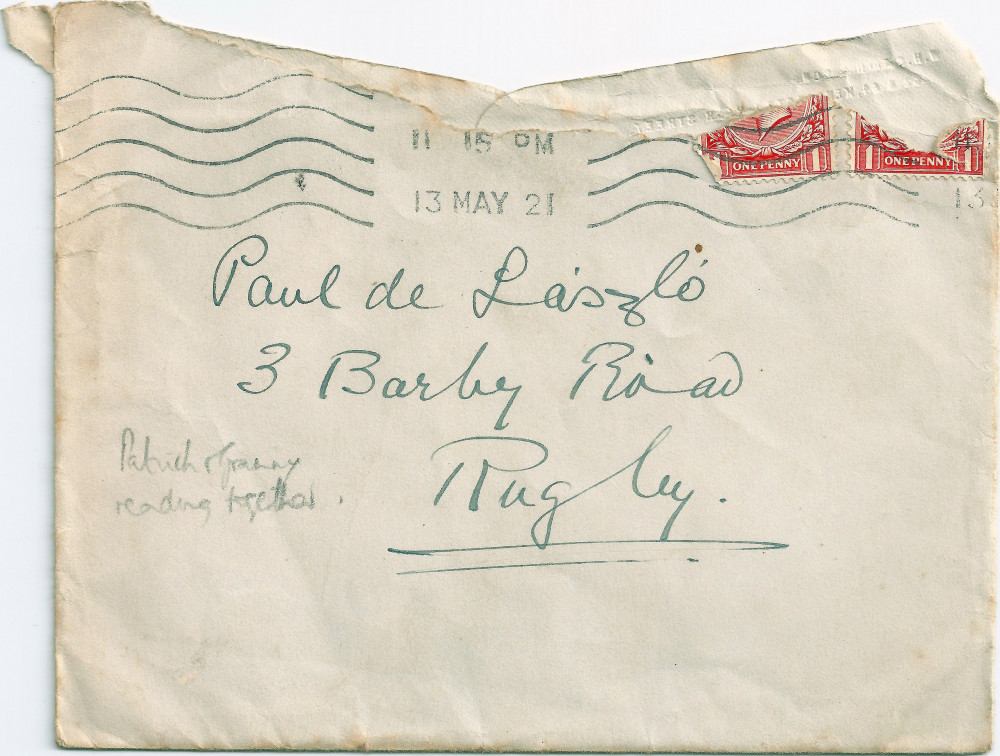 STREET
11 15 PM
13 MAY 21
1 ONE PENNY 1
1 ONE PENNY 1
133
Paul de László
3 Barby Road
Rugby.
Patrick & Granny
reading together.